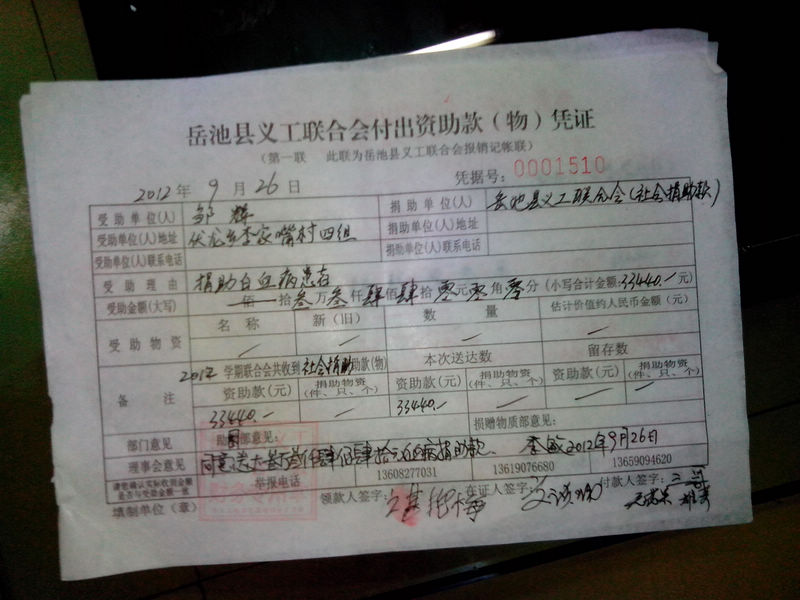 岳池县义工联合会付出资助款（物）凭证
（第一联 此联为岳池县义工联合会报销记帐联）
凭据号：0001510
2012年 9月26日
受助单位(人) 邹辉 捐助单位(人) 岳池县义工联合会(社会捐助款)
受助单位(人)地址 伏龙乡李家嘴村四组 捐助单位(人)地址
受助单位(人)联系电话 捐助单位(人)联系电话
受助理由 捐助白血病患者
受助金额(大写) 佰 拾叁万叁仟肆佰肆拾零元零角零分 (小写合计金额:33440.- 元)
受助物资 名称 新（旧） 数量 估计价值约人民币金额（元）
备注 2012学期联合会共收到社会捐助助款(物) 本次送达数 留存数
资助款(元) 捐助物资(件、只、个) 资助款(元) 捐助物资(件、只、个) 资助款(元) 捐助物资(件、只、个)
33440.- 33440.-
部门意见 部意见: 捐赠物质部意见:
理事会意见 同意送 捐助款、 李敏 2012年9月26日
请您确认实际收到金额是否与受助金额一致 举报电话 13608277031 13619076680 13659094620
填制单位（章） 领款人签字: 在证人签字: 付款人签字: